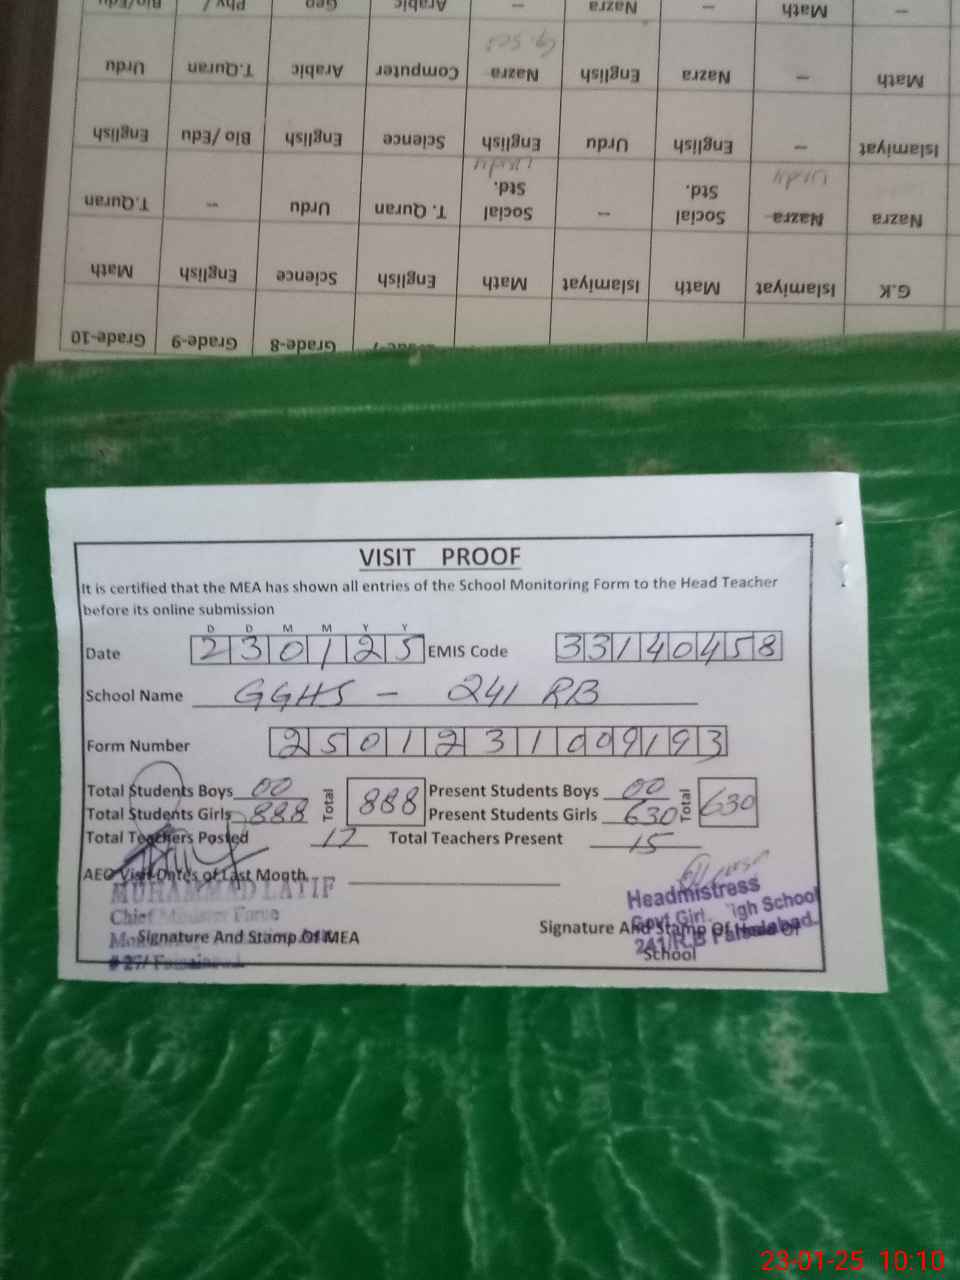 Bio/Edu Phy / Gen Arabic – Nazra – Math –
Urdu T.Quran Arabic Computer Nazra English Nazra – Math
English Bio /Edu English Science English Urdu English – Islamiyat
T.Quran – Urdu T. Quran Social Std. – Social Std. Nazra Nazra
Urdu
Math English Science English Math Islamiyat Math Islamiyat G.K
Grade-10 Grade-9 Grade-8
VISIT PROOF
It is certified that the MEA has shown all entries of the School Monitoring Form to the Head Teacher
before its online submission
D D M M Y Y
Date 230125 EMIS Code 33140458
School Name GGHS - 241 RB
Form Number 2501231009193
Total Students Boys 00 Total 888 Present Students Boys 00 Total 630
Total Students Girls 888 Present Students Girls 630
Total Teachers Posted 17 Total Teachers Present 15
AEO Visit Dates of Last Month
MUHAMMAD LATIF
Chief
Signature And Stamp Of MEA
Headmistress
Govt Girl igh School
241/R.B
Signature And Stamp Of Head Of
School
23-01-25 10:10